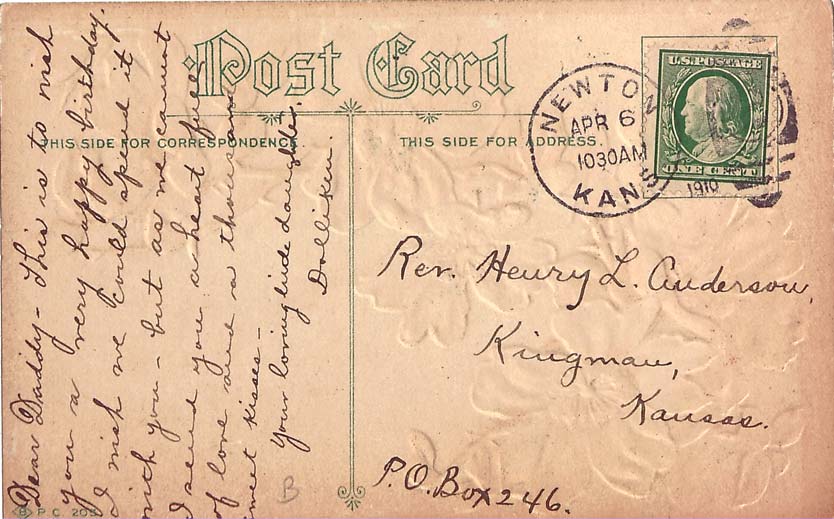 Post Card
THIS SIDE FOR CORRESPONDENCE.
THIS SIDE FOR ADDRESS.
Dear Daddy - This is to wish
you a very happy birthday.
I wish we could spend it
with you - but as we cannot
I send you a heart full
of love and a thousand
sweet kisses -
Your loving little daughter.
Dolliken.
NEWTON
APR 6
1030AM
KANS.
1910
U.S. POSTAGE
ONE CENT 1
Rev. Henry L. Anderson,
Kingman,
Kansas.
P.O. Box 246.
B
B P.C. 205